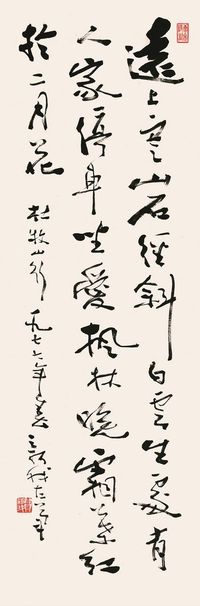 遠上寒山石經斜白雲生處有
人家停車坐愛楓林晚霜葉紅
於二月花 杜牧山行 一九七六年